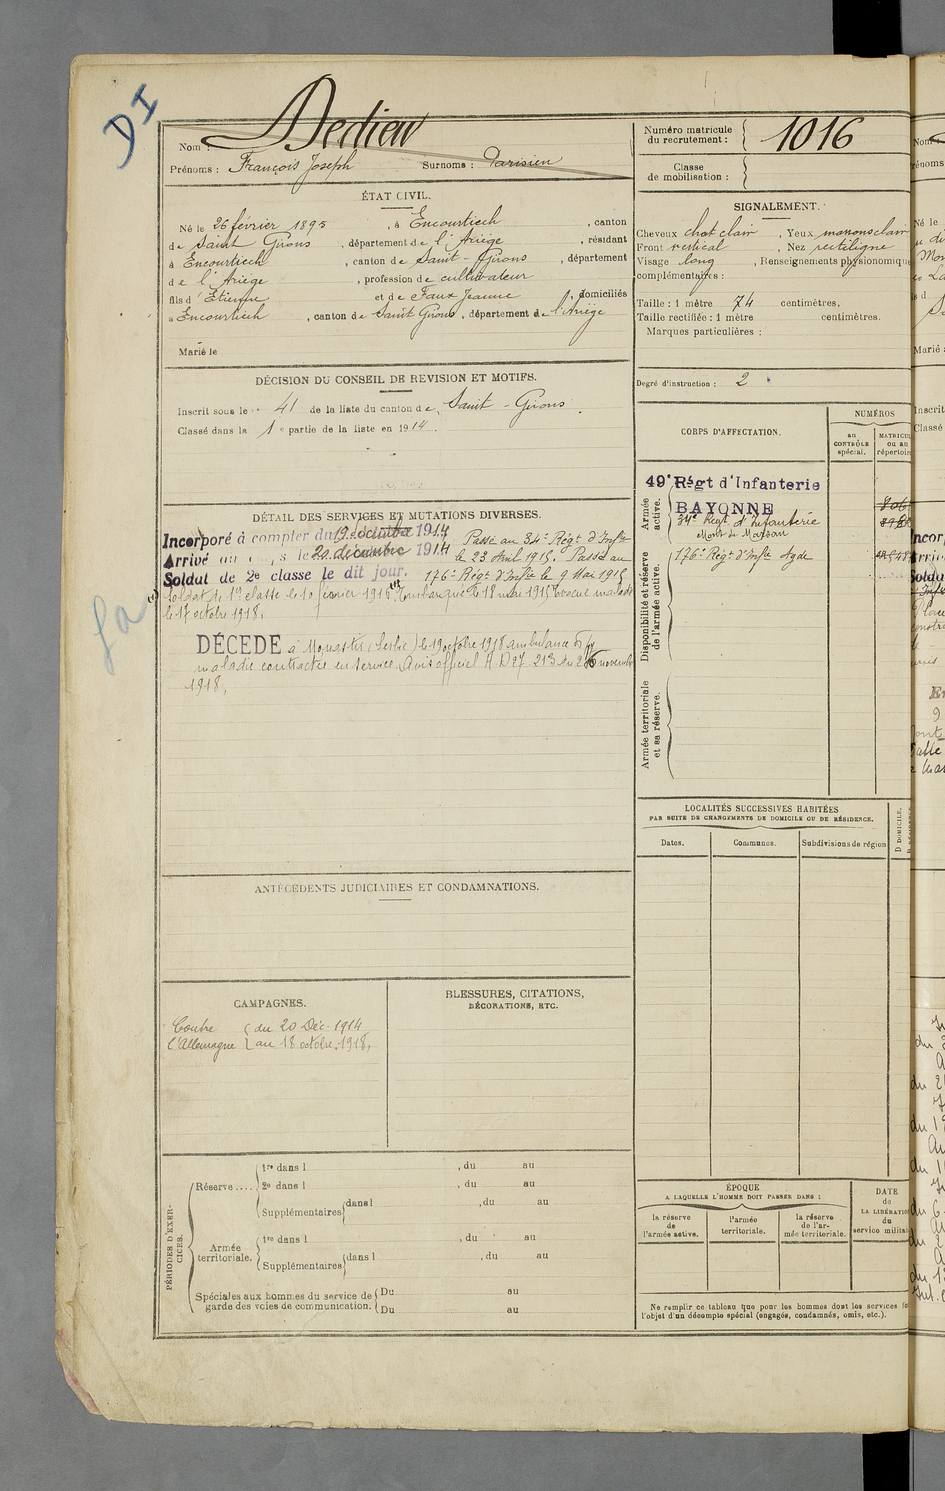 DI
Nom : Dedieu
Prénoms : François Joseph Surnoms : Parisien
Numéro matricule du recrutement : 1016
Classe de mobilisation :
ÉTAT CIVIL.
Né le 26 février 1895, à Encourtiech, canton
de Saint Girons, département de l'Ariège, résidant
à Encourtiech, canton de Saint-Girons, département
de l'Ariège, profession de cultivateur
fils d'Etienne et de Faux Jeanne, domiciliés
à Encourtiech, canton de Saint Girons, département de l'Ariège
Marié le
SIGNALEMENT.
Cheveux chat clair, Yeux marrons clair
Front vertical, Nez rectiligne
Visage long, Renseignements physionomique
complémentaires :
Taille : 1 mètre 74 centimètres.
Taille rectifiée : 1 mètre centimètres.
Marques particulières :
Degré d'instruction : 2
DÉCISION DU CONSEIL DE REVISION ET MOTIFS.
Inscrit sous le n° 41 de la liste du canton de Saint-Girons.
Classé dans la 1e partie de la liste en 1914.
DÉTAIL DES SERVICES ET MUTATIONS DIVERSES.
Incorporé à compter du 19 décembre 1914
Arrivé au corps le 20 décembre 1914
Soldat de 2e classe le dit jour.
Passé au 34e Régt d'Infie
le 23 Avril 1915. Passé au
176e Régt d'Infie le 9 Mai 1915
Soldat de 1re classe le 10 février 1916 Embarqué le 18 mai 1915 Evacué malade
le 17 octobre 1918.
DÉCÉDÉ à Monastir (Serbie) le 19 octobre 1918 ambulance
maladie contractée en service. Avis officiel A D 27 213 du 26 novembre
1918.
CORPS D'AFFECTATION.
NUMÉROS
au CONTRÔLE spécial.
MATRICULE ou au répertoire
Armée active.
49e Régt d'Infanterie
BAYONNE
34e Régt d'Infanterie
Mont de Marsan
Disponibilité et réserve de l'armée active.
176e Régt d'Infie Agde
Armée territoriale et sa réserve.
LOCALITÉS SUCCESSIVES HABITÉES
PAR SUITE DE CHANGEMENTS DE DOMICILE OU DE RÉSIDENCE.
Dates. Communes. Subdivisions de région
D DOMICILE.
ANTÉCÉDENTS JUDICIAIRES ET CONDAMNATIONS.
CAMPAGNES.
Contre l'Allemagne
du 20 Déc. 1914
au 18 octobre 1918.
BLESSURES, CITATIONS,
DÉCORATIONS, ETC.
PÉRIODES D'EXERCICES.
Réserve.....
1re dans l , du au
2e dans l , du au
Supplémentaires dans l , du au
Armée territoriale.
1re dans l , du au
Supplémentaires dans l , du au
Spéciales aux hommes du service de garde des voies de communication.
Du au
Du au
ÉPOQUE
A LAQUELLE L'HOMME DOIT PASSER DANS :
la réserve de l'armée active.
l'armée territoriale.
la réserve de l'armée territoriale.
DATE de LA LIBÉRATION du service militai
Ne remplir ce tableau que pour les hommes dont les services fo
l'objet d'un décompte spécial (engagés, condamnés, omis, etc.).